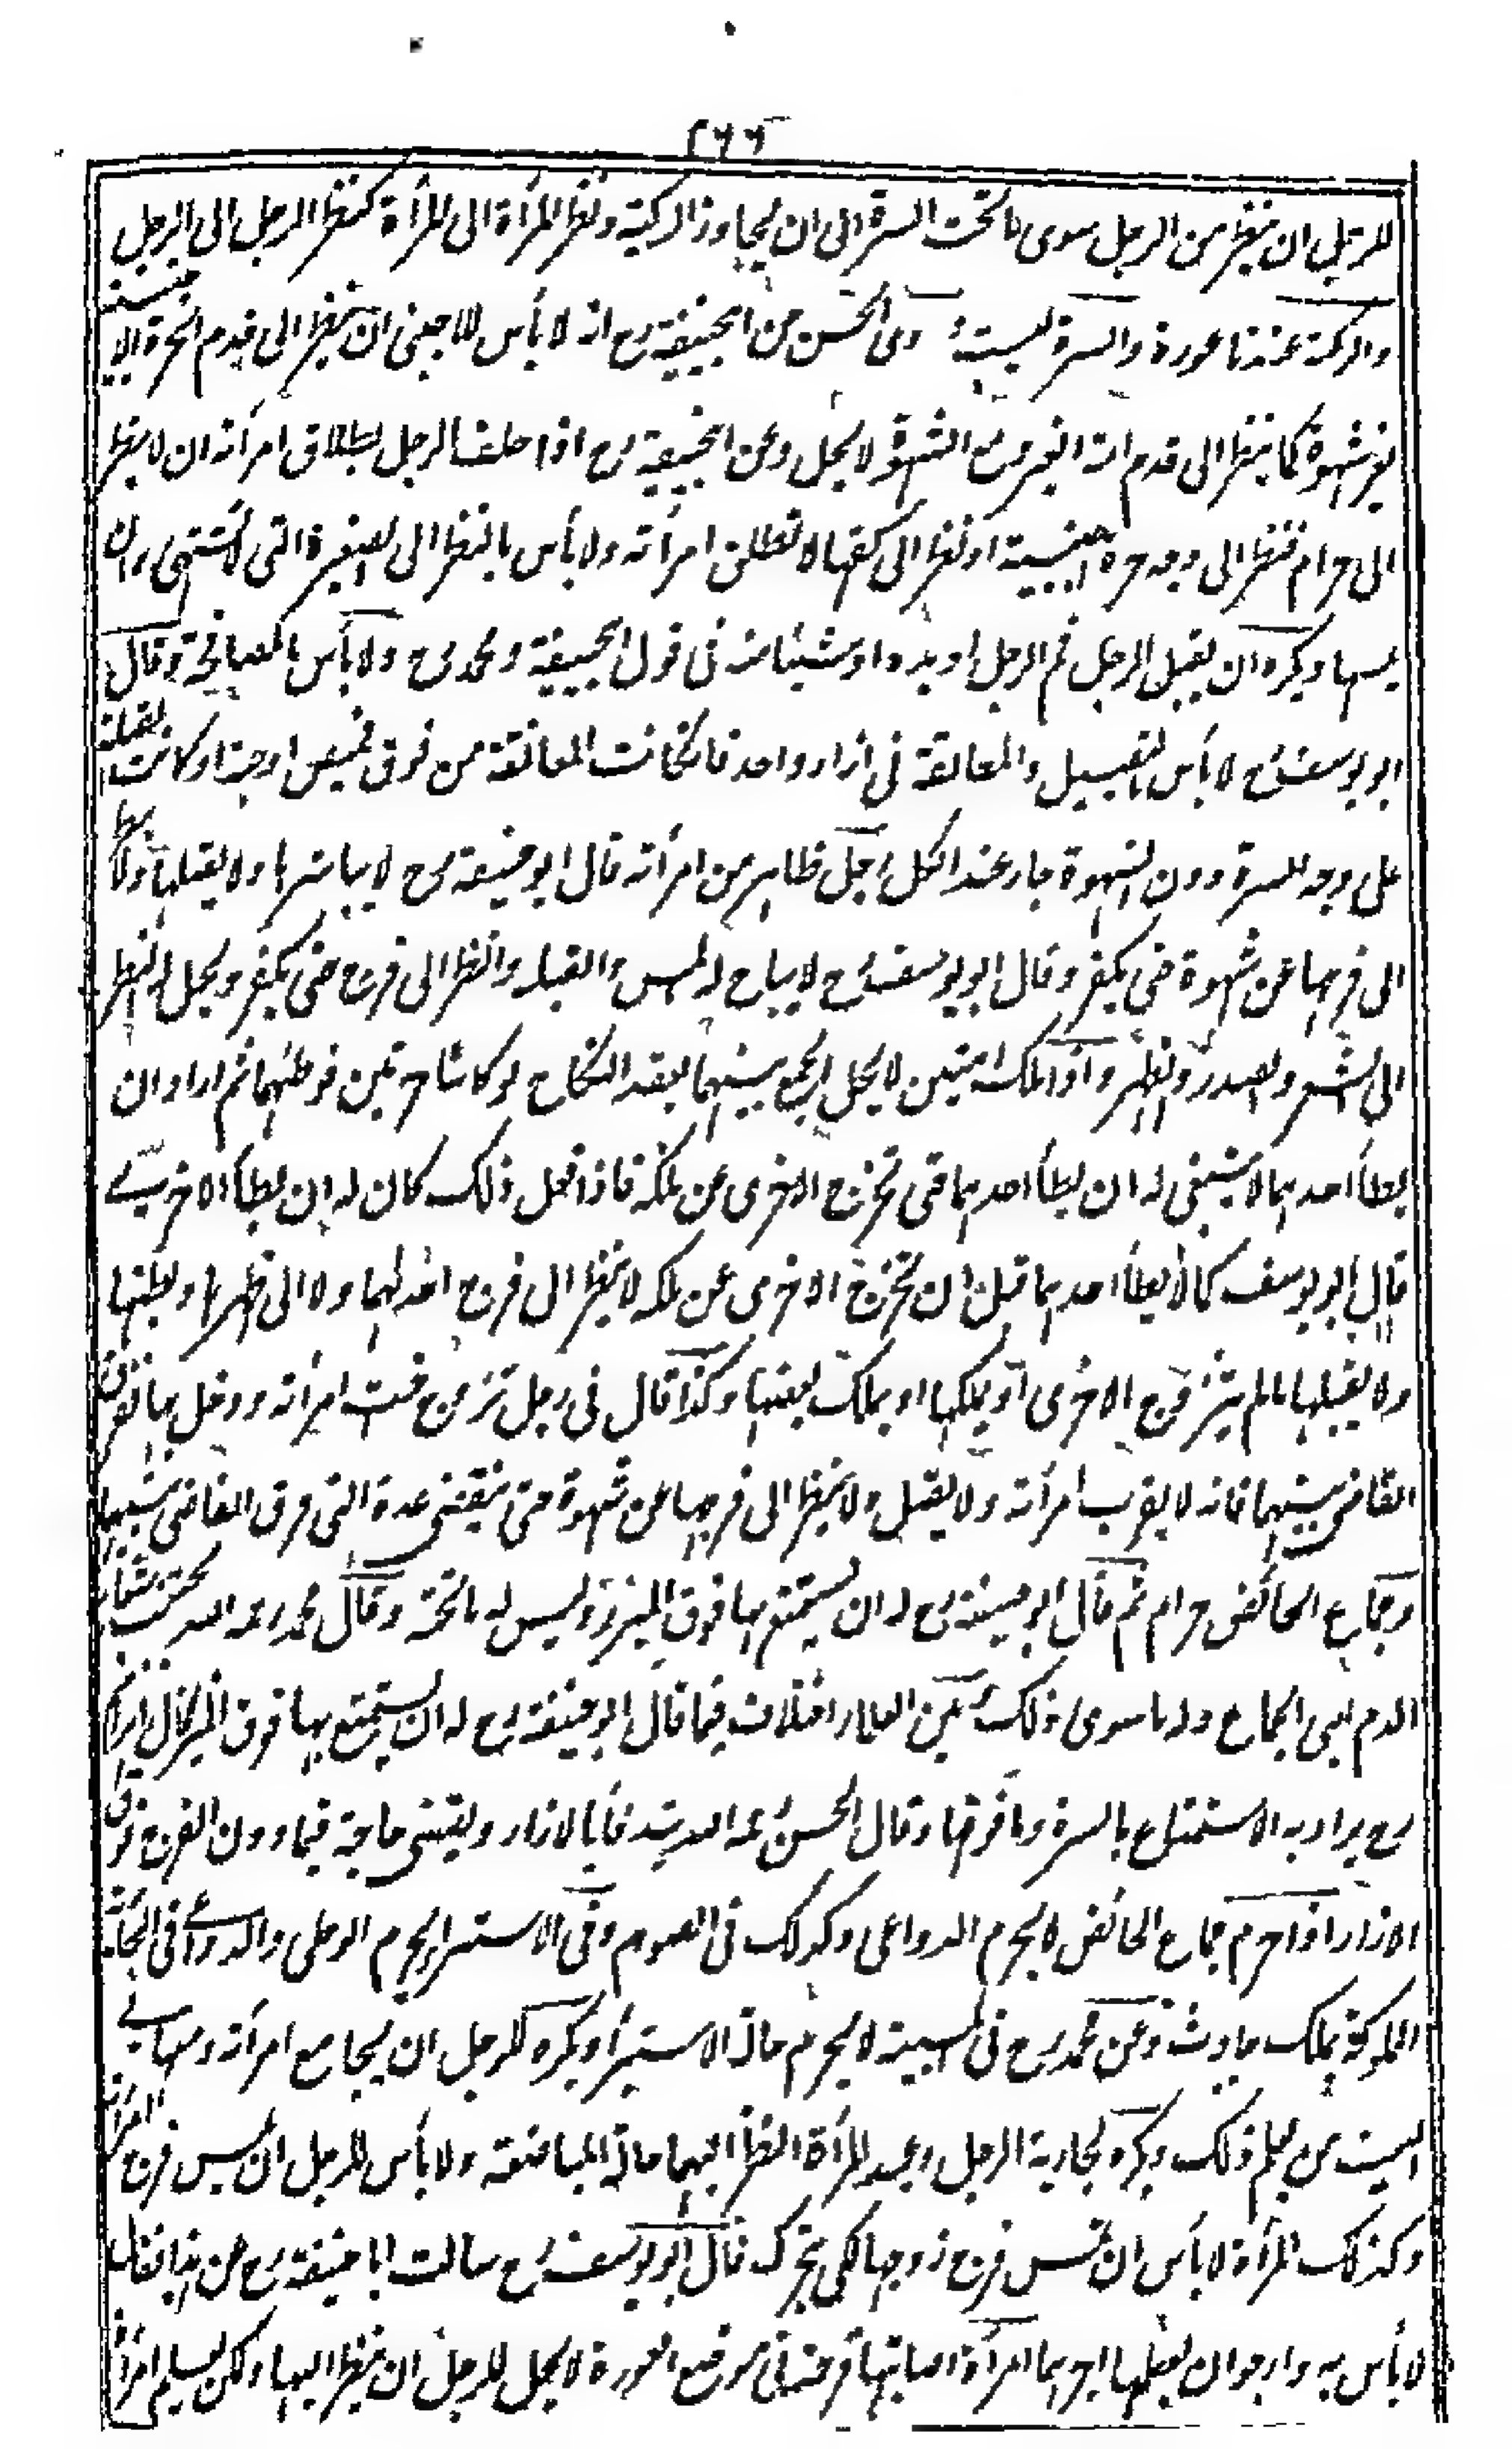 ٢٦٦
للرجل ان ينظر من الرجل سوى ما تحت السرة الى ان يجاوز الركبة ونظر المرأة الى المرأة كنظر الرجل الى الرجل
والركبة عندنا عورة والسرة ليست وروى الحسن عن ابيحنيفة رح انه لا بأس للاجنبى ان ينظر الى قدم الحرة الاجنبية
بغير شهوة كما ينظر الى قدم امة الغير ومع الشهوة لا يحل وعن ابيحنيفة رح اذا حلف الرجل بطلاق امرأته ان لا ينظر
الى حرام فنظر الى وجه حرة اجنبية او نظر الى كفها لا تطلق امرأته ولا بأس بالنظر الى الصغيرة التى لا تشتهى وان
يمسها ويكره ان يقبل الرجل فم الرجل او يده او شيئا منه فى قول ابيحنيفة ومحمد رح ولا بأس بالمصافحة وقال
ابو يوسف رح لا بأس بالتقبيل والمعانقة فى ازار واحد فان كانت المعانقة من فوق قميص او جبة او كانت القبلة
على وجه المسرة دون الشهوة جاز عند الكل رجل ظاهر من امرأته قال ابو حنيفة رح لا يباشرها ولا يقبلها ولا
الى فرجها عن شهوة حتى يكفر وقال ابو يوسف رح لا يباح له المس والقبلة والنظر الى فرج حتى يكفر ويحل له النظر
الى الشعر والصدر والظهر واذا ملك امتين لا يحل الجمع بينهما بعقد النكاح لو كانتا حرتين فوطئهما ثم اراد ان
يطأ احدهما لا ينبغى له ان يطأ احدهما حتى تخرج الاخرى عن ملكه فاذا فعل ذلك كان له ان يطأ الاخرى
قال ابو يوسف كما لا يطأ احدهما قبل ان تخرج الاخرى عن ملكه لا ينظر الى فرج احدهما ولا الى ظهرها وبطنها
ولا يقبلها ما لم فرج الاخرى او يملكها او يملك بعضها وكذا قال فى رجل تزوج اخت امرأته ودخل بها ففرق
القاضى بينهما فانه لا يقرب امرأته ولا يقبل ولا ينظر الى فرجها عن شهوة حتى تنقضى عدة التى فرق القاضى بينهما
وجماع الحائض حرام ثم قال ابو حنيفة رح له ان يستمتع بها فوق الميزر وليس له ما تحته وقال محمد رحمه الله يجتنب شعار
الدم يعنى الجماع وله ما سوى ذلك بين العلماء اختلاف فيما قال ابو حنيفة رح له ان يستمتع بها فوق الميزر قال ابراهيم
رح يراد به الاستمتاع بالسرة وما فوقها وقال الحسن رحمه الله يتدفأ بالازار ويقضى حاجته فيما دون الفرج فوق
الازار اذا حرم جماع الحائض لا يحرم الدواعى وكذلك فى الصوم وفى الاستبراء يحرم الوطى والدواعى فى الجارية
المملوكة بملك حادث وعن محمد رح فى المسبية لا يحرم حالة الاستبراء ويكره للرجل ان يجامع امرأته ومعها فى
البيت من يعلم ذلك ويكره لجارية الرجل وعبد المرأة النظر اليهما حالة المباضعة ولا بأس للرجل ان يمس فرج امرأته
وكذلك المرأة لا بأس ان تمس فرج زوجها لكى يتحرك قال ابو يوسف رح سالت ابا حنيفة رح عن هذا فقال
لا بأس به وارجو ان يعظم اجرهما امرأة اصابتها قرحة فى موضع العورة لا يحل للرجل ان ينظر اليها ولكن يعلم امرأة